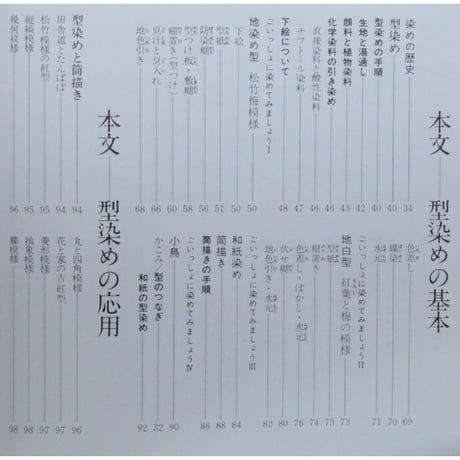 本文——型染めの基本
染めの歴史 34
型染め 40
型染めの手順 40
生地と湯通し 42
顔料と植物染料 43
化学染料の引き染め 46
直接染料と酸性染料 46
ナフトール染料 47
下絵について 48
ごいっしょに染めてみましょうⅠ
地染め型 松竹梅模様 50
下絵 50
型紙 51
防染糊 56
型つけ板・敷糊 58
糊置き(型つけ) 60
豆汁と豆入れ 66
地色引き 68
色差し 69
70
水元 71
ごいっしょに染めてみましょうⅡ
地白型 紅葉と梅の模様 73
型紙 73
糊置き 74
色差し・ぼかし・水元 76
伏せ糊 80
地色引き・水元 82
ごいっしょに染めてみましょうⅢ
和紙染め 84
筒描き 88
筒描きの手順 88
ごいっしょに染めてみましょうⅣ
小鳥 90
かこみ/型のつなぎ 32
和紙の型染め 92
本文——型染めの応用
型染めと筒描き 94
田舎道とたんぽぽ 94
松竹梅模様の紅型 95
縦縞模様 95
幾何紋様 96
丸と四角模様 96
花と家の古紅型 97
菱形模様 97
抽象模様 98
蝶模様 98